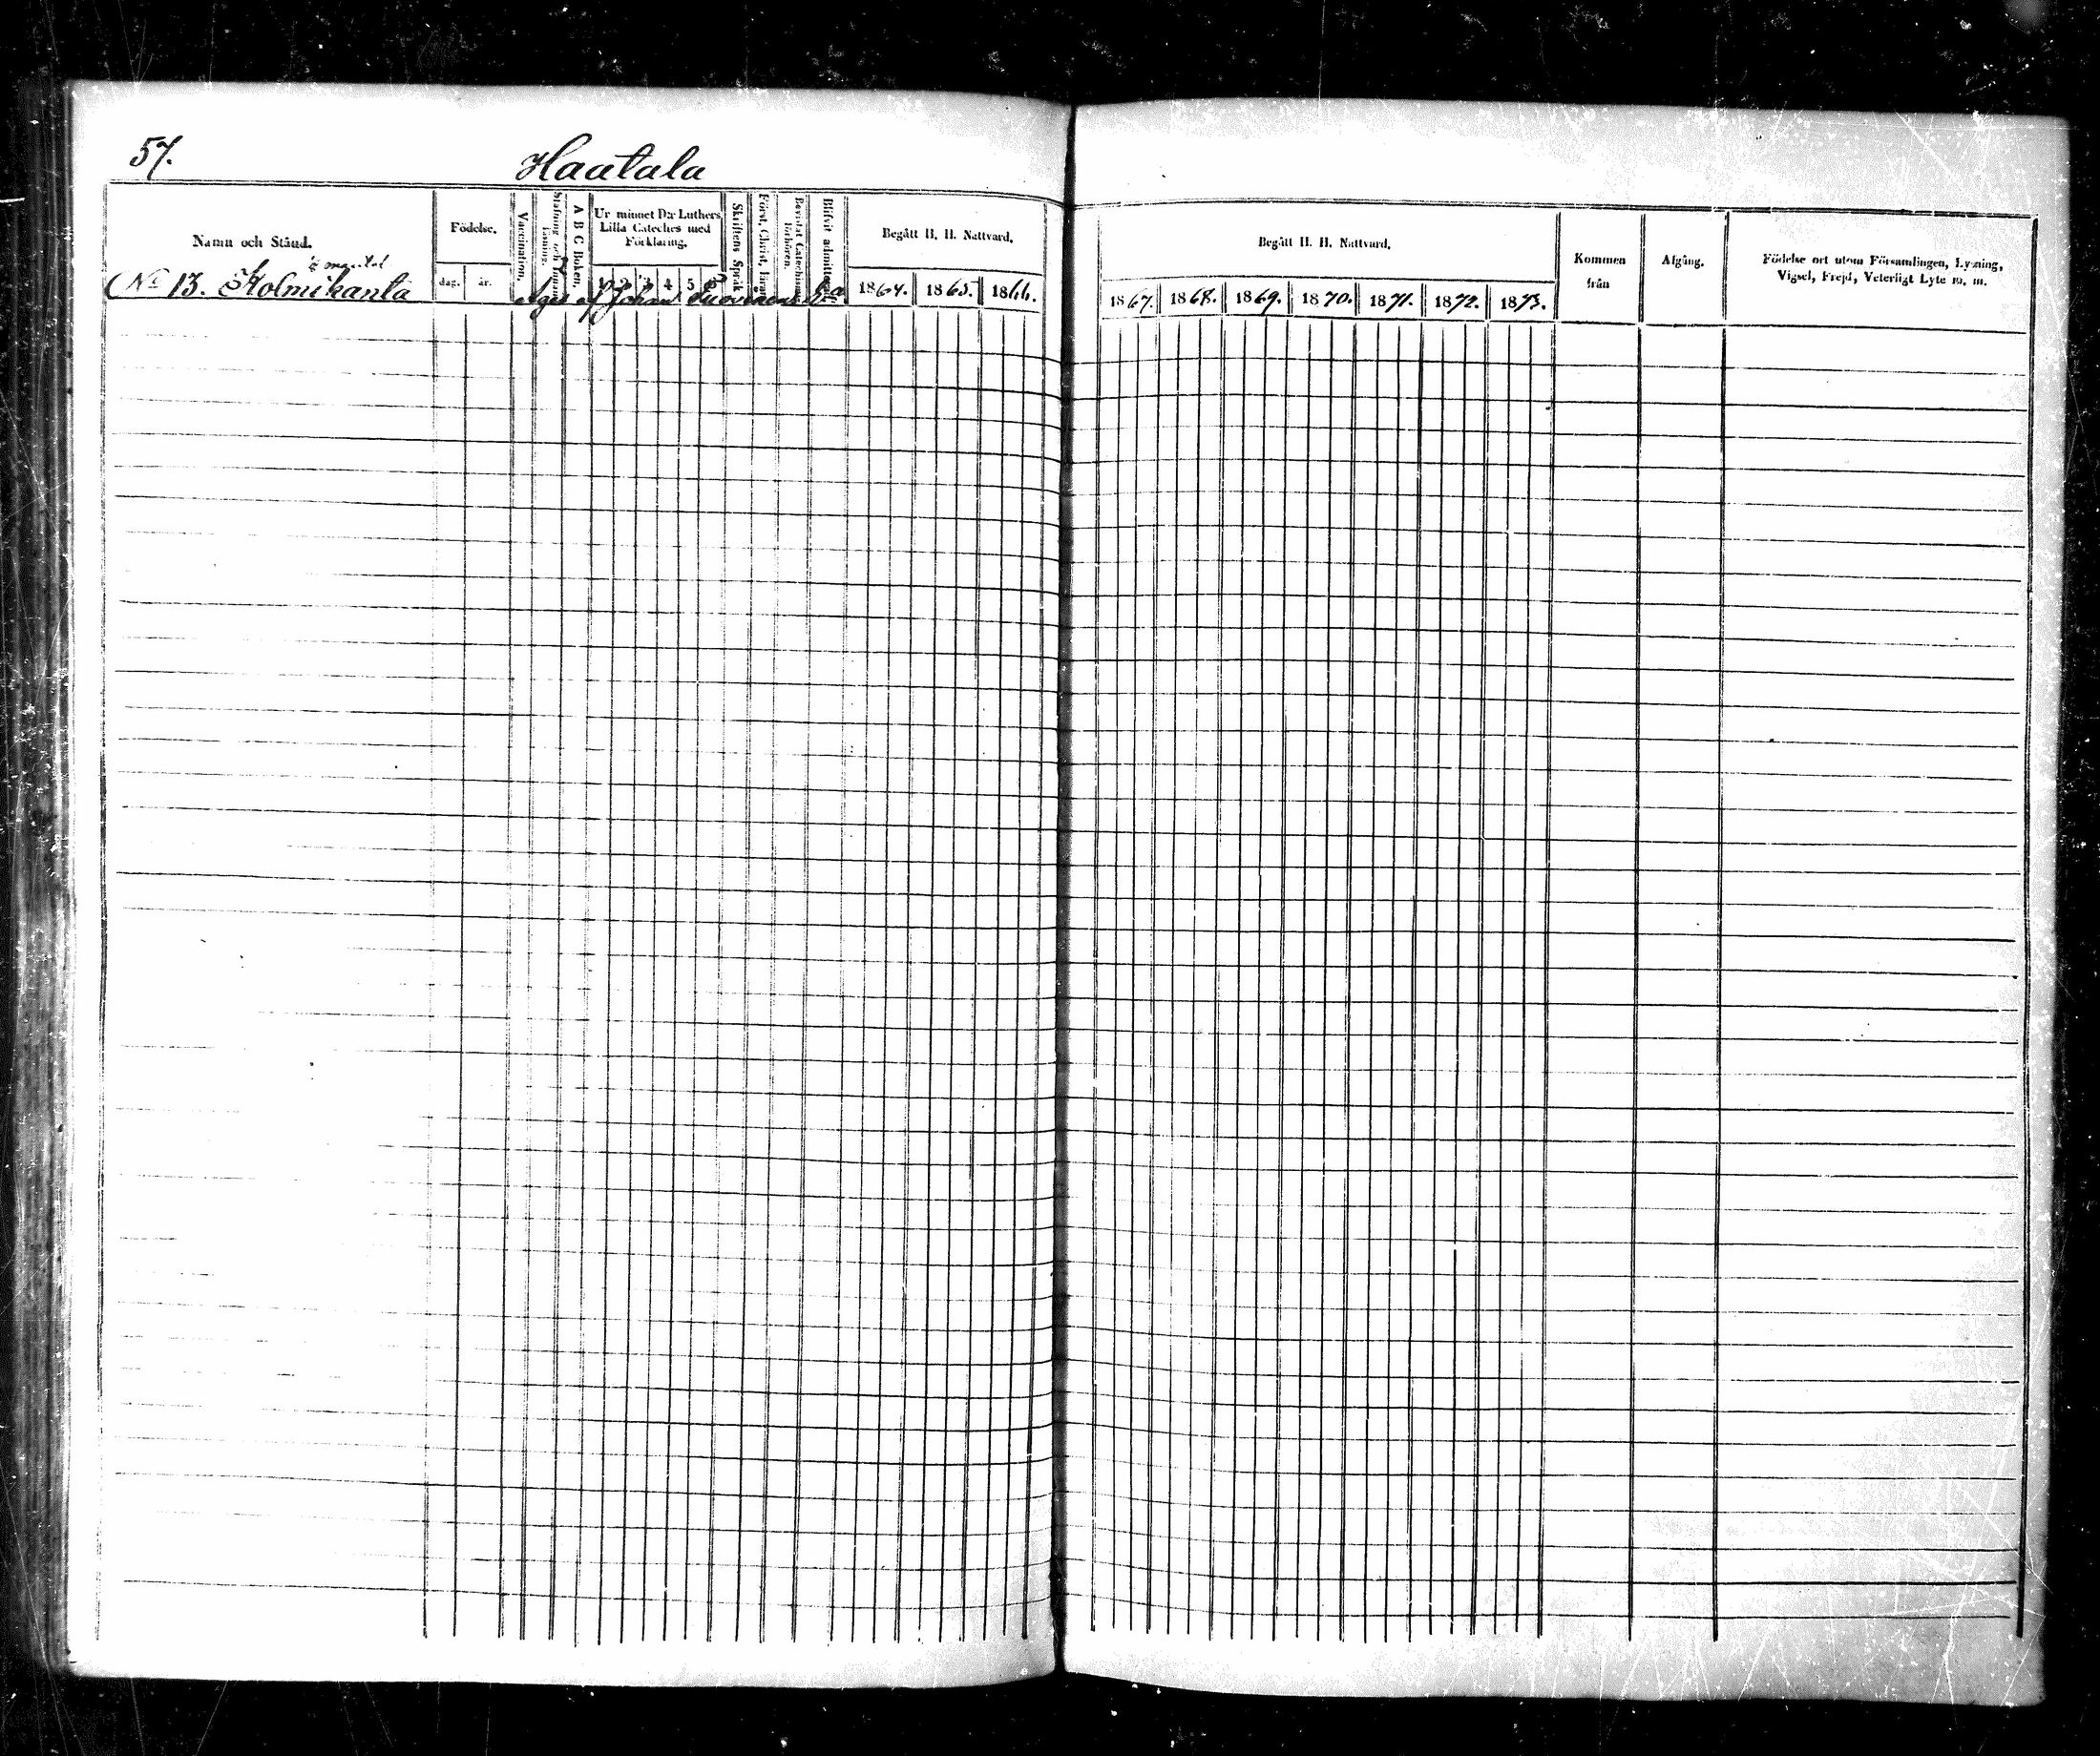 57.
Haatala
Namn och Stånd.
Födelse.
dag.
år.
Vaccination.
Stafning och Innanläsning.
A B C Boken.
Ur minnet D:r Luthers
Lilla Cateches med
Förklaring.
1 2 3 4 5 6
Skriftens Språk
Först. Christ. lära
Bevistat Catechismiförhören.
Blifvit admitterad
Begått H. H. Nattvard.
1864. 1865. 1866.
mantal
No 13. Kolmikanta
Äges af Johan Tuovinen
Begått H. H. Nattvard.
1867. 1868. 1869. 1870. 1871. 1872. 1873.
Kommen
från
Afgång.
Födelse ort utom Församlingen, Lysning,
Vigsel, Frejd, Veterligt Lyte m. m.